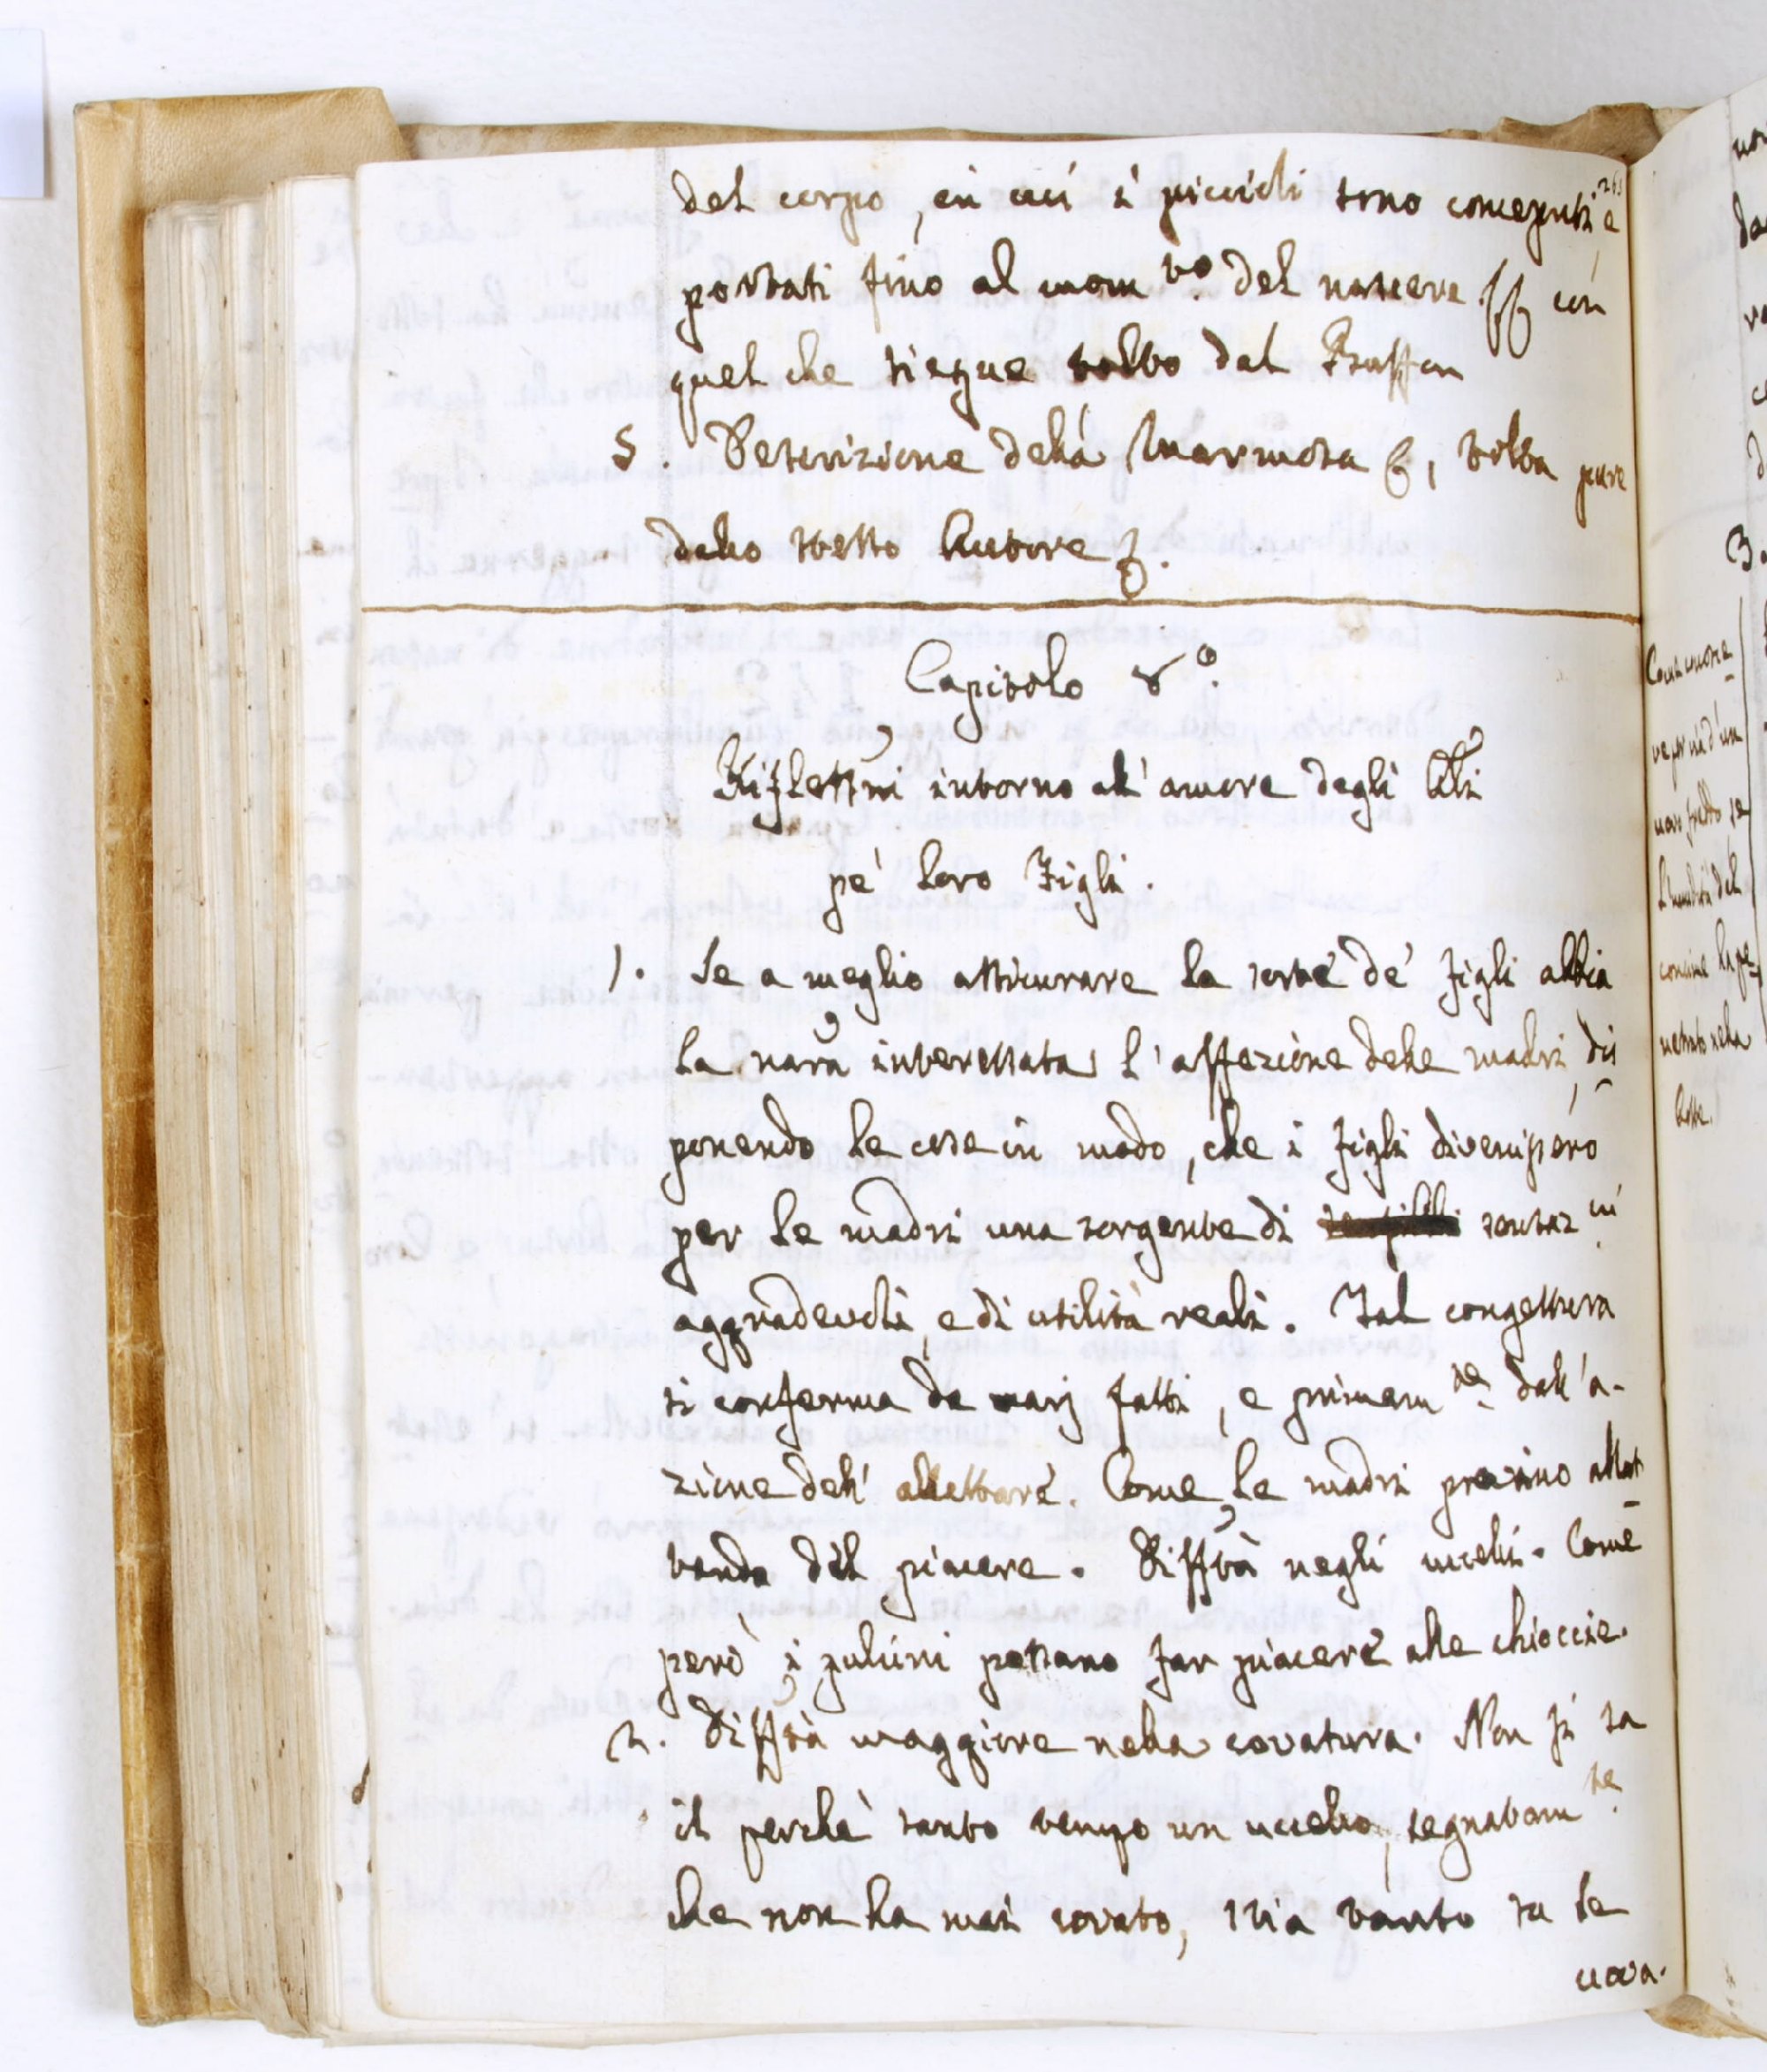 del corpo, in cui i piccioli sono conceputi e
portati fino al mom.to del nascere con
quel che siegue tolto dal Buffon
5. Descrizione della Marmosa &, tolta pure
dallo stesso Autore &.
Capitolo 8.o
Riflessni intorno all'amore degli Alti
pe' loro Figli.
1. Se a meglio assicurare la sorte de' figli abbia
la nara interessata l'affezione delle madri, dis
ponendo le cose in modo, che i figli divenissero
per le madri una sorgente di sensaz.ni
aggradevoli, e di utilità reali. Tal congettura
si conferma da varj fatti, e primam.te dall'a-
zione dell'allattare. Come le madri provino allat
tando del piacere. Diffta negli uccelli. Come
però i pulcini possano far piacere alle chioccie.
2. Diffta maggiore nella covatura. Non si sa
il perchè tanto tempo un uccello, segnatam.te
che non ha mai covato, stia tanto su le
uova.
3.
Come muore